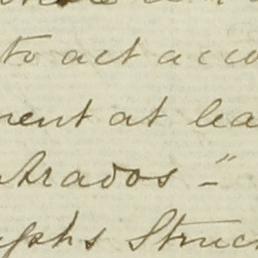 to act acco
ment at lea
trados -"
aphs Struc